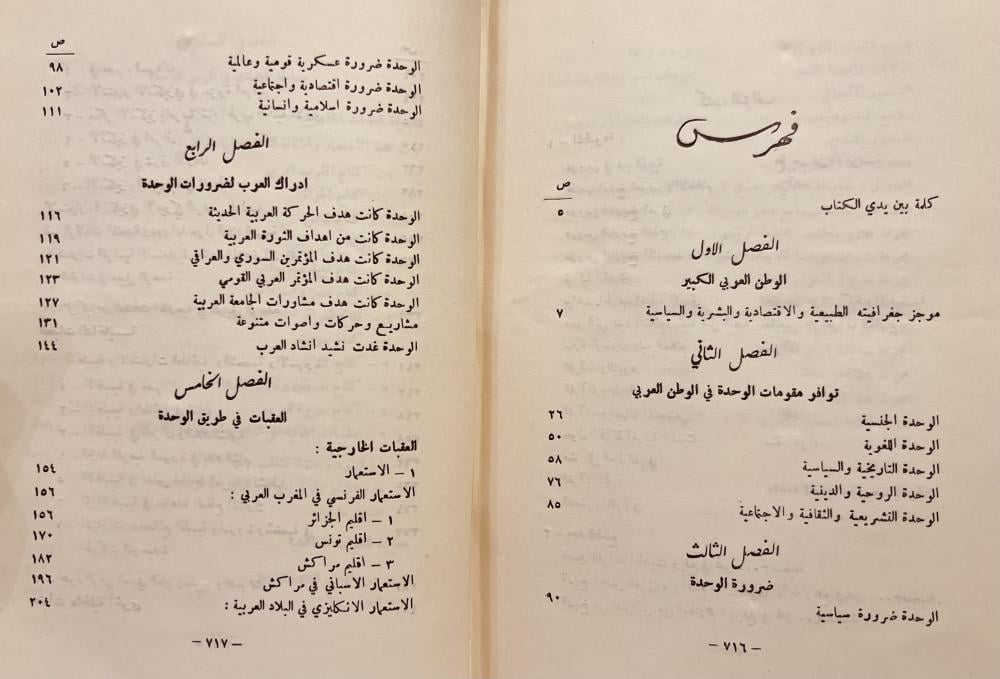 فهرس
ص
كلمة بين يدي الكتاب ٥
الفصل الاول
الوطن العربي الكبير
موجز جغرافيته الطبيعية والاقتصادية والبشرية والسياسية ٧
الفصل الثاني
توافر مقومات الوحدة في الوطن العربي
الوحدة الجنسية ٢٦
الوحدة اللغوية ٥٠
الوحدة التاريخية والسياسية ٥٨
الوحدة الروحية والدينية ٧٦
الوحدة التشريعية والثقافية والاجتماعية ٨٥
الفصل الثالث
ضرورة الوحدة
الوحدة ضرورة سياسية ٩٠
– ٧١٦ –
ص
الوحدة ضرورة عسكرية قومية وعالمية ٩٨
الوحدة ضرورة اقتصادية واجتماعية ١٠٢
الوحدة ضرورة اسلامية وانسانية ١١١
الفصل الرابع
ادراك العرب لضرورات الوحدة
الوحدة كانت هدف الحركة العربية الحديثة ١١٦
الوحدة كانت من اهداف الثورة العربية ١١٩
الوحدة كانت هدف المؤتمرين السوري والعراقي ١٢١
الوحدة كانت هدف المؤتمر العربي القومي ١٢٣
الوحدة كانت هدف مشاورات الجامعة العربية ١٢٧
مشاريع وحركات واصوات متنوعة ١٣١
الوحدة غدت نشيد انشاد العرب ١٤٤
الفصل الخامس
العقبات في طريق الوحدة
العقبات الخارجية :
١ – الاستعمار ١٥٤
الاستعمار الفرنسي في المغرب العربي : ١٥٦
١ – اقليم الجزائر ١٥٦
٢ – اقليم تونس ١٧٠
٣ – اقليم مراكش ١٨٢
الاستعمار الاسباني في مراكش ١٩٦
الاستعمار الانكليزي في البلاد العربية : ٢٠٤
– ٧١٧ –